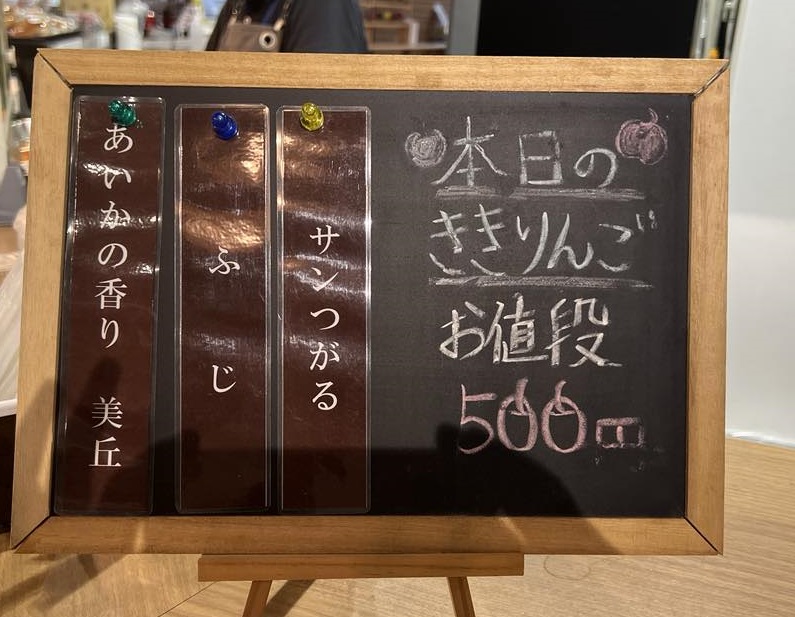 本日の
ききりんご
お値段
500円
サンつがる
ふじ
あいかの香り 美丘